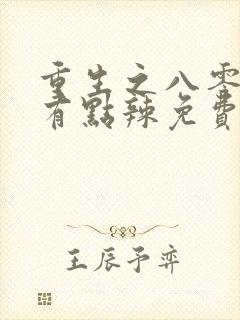 重生之八零
有點辣免費
王辰予弈